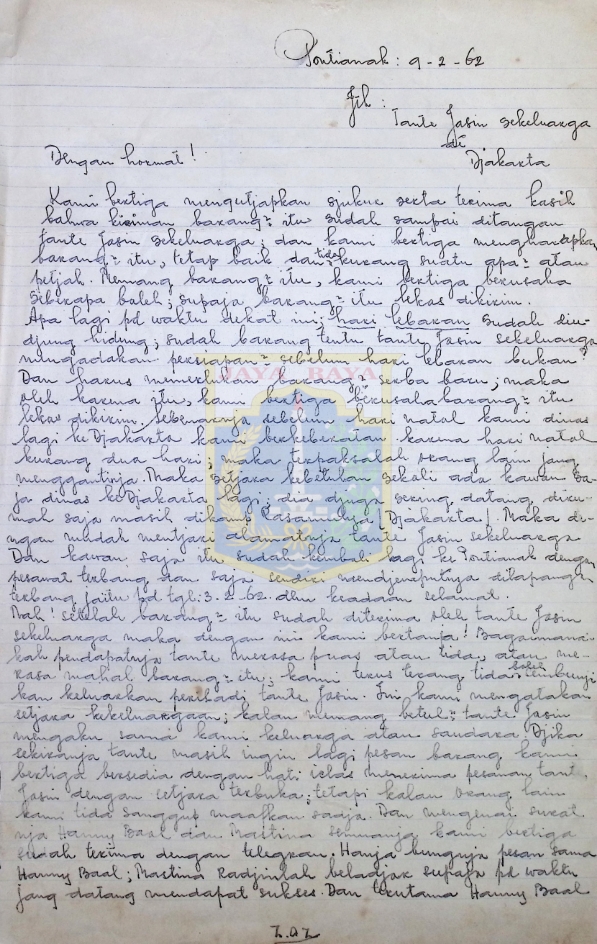 Pontianak : 9-2-62
Jth :
Tante Jasin sekeluarga
di
Djakarta
Dengan hormat !
Kami bertiga mengutjapkan sjukur serta terima kasih
bahwa kiriman barang² itu sudah sampai ditangan
tante Jasin sekeluarga; dan kami bertiga mengharapkan
barang² itu, tetap baik dan tida kurang suatu apa² atau
petjah. Memang barang² itu, kami bertiga berusaha
seberapa boleh; supaja barang² itu lekas dikirim.
Apa lagi pd waktu dekat ini; hari lebaran sudah diu-
djung hidung; sudah barang tentu tante Jasin sekeluarga
mengadakan persiapan² sebelum hari lebaran bukan?
Dan harus memerlukan barang² serba baru; maka
oleh karena itu, kami bertiga berusaha barang² itu
lekas dikirim. Sebenarnja sebelum hari natal kami dinas
lagi ke Djakarta kami berkeberatan karena hari natal
kurang dua hari; maka terpaksalah orang lain jang
menggantinja. Maka setjara kebetulan sekali ada kawan sa-
ja dinas ke Djakarta lagi; dia djuga sering datang diru-
mah saja masih di Djakarta! Maka de-
ngan mudah mentjari alamatnja tante Jasin sekeluarga
Dan kawan saja itu sudah kembali lagi ke Pontianak dengan
pesawat terbang dan saja sendiri mendjemputnja dilapangan
terbang jaitu pd tgl: 3-2-62. dlm keadaan selamat.
Nah! setelah barang² itu sudah diterima oleh tante Jasin
sekeluarga maka dengan ini kami bertanja! Bagaimana-
kah pendapatnja tante merasa puas atau tida, atau me-
rasa mahal barang² itu; kami terus terang tida boleh sembunji
kan keluarkan peribadi tante Jasin. Ini kami mengatakan
setjara kekeluargaan; kalau memang betul² tante Jasin
mengaku sama kami keluarga atau saudara. Djika
sekiranja tante masih ingin lagi pesan barang kami
bertiga bersedia dengan hati iclas menerima pesanan tante
Jasin dengan setjara terbuka; tetapi kalau orang lain
kami tida sanggup maafkan sadja. Dan mengenai surat
nja Hanny Baal dan Martina semuanja kami bertiga
sudah terima dengan telegram. Hanja bungnja pesan sama
Hanny Baal; Martina Radjinlah beladjar supaja pd waktu
jang datang mendapat sukses. Dan terutama Hanny Baal
JAYA RAYA